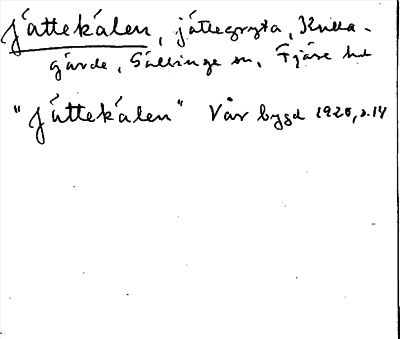 Jättekälen, jättegryta, Kulla-
gärde, Sällinge sn, Fjäre hd
"Jättekälen" Vår bygd 1926, s. 14